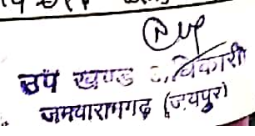 उप खण्ड अधिकारी
जमवारामगढ़ (जयपुर)